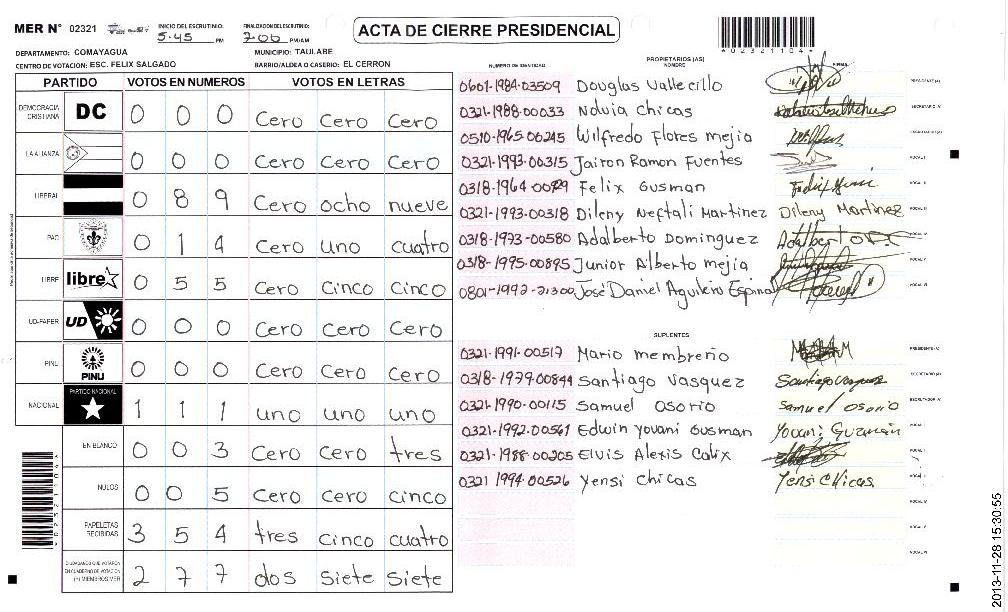 MER N° 02321 INICIO DEL ESCRUTINIO: 5:45 PM FINALIZACION DEL ESCRUTINIO: 7:00 PM/AM
ACTA DE CIERRE PRESIDENCIAL
02321104
DEPARTAMENTO: COMAYAGUA MUNICIPIO: TAULABE
CENTRO DE VOTACION: ESC. FELIX SALGADO BARRIO/ALDEA O CASERIO: EL CERRON
PARTIDO VOTOS EN NUMEROS VOTOS EN LETRAS
DEMOCRACIA CRISTIANA DC 0 0 0 Cero Cero Cero
LA ALIANZA 0 0 0 Cero Cero Cero
LIBERAL 0 8 9 Cero ocho nueve
PAC 0 1 4 Cero uno cuatro
LIBRE libre 0 5 5 Cero Cinco Cinco
UD-FAPER UD 0 0 0 Cero Cero Cero
PINU PINU 0 0 0 Cero Cero Cero
NACIONAL PARTIDO NACIONAL 1 1 1 uno uno uno
EN BLANCO 0 0 3 Cero Cero tres
NULOS 0 0 5 Cero Cero cinco
PAPELETAS RECIBIDAS 3 5 4 tres cinco cuatro
CIUDADANOS QUE VOTARON EN CUADERNO DE VOTACION (+) MIEMBROS MER 2 7 7 dos siete siete
NUMERO DE IDENTIDAD PROPIETARIOS (AS) NOMBRE FIRMA
0601-1984-03509 Douglas Vallecillo PRESIDENTE (A)
0321-1988-00033 Nolvia Chicas SECRETARIO (A)
0510-1965-00245 Wilfredo Flores mejia ESCRUTADOR (A)
0321-1993-00315 Jairon Ramon Fuentes VOCAL I
0318-1964-00 Felix Gusman VOCAL II
0321-1993-00318 Dileny Neftali Martinez Dileny Martinez VOCAL III
0318-1993-00580 Adalberto Dominguez VOCAL IV
0318-1995-00895 Junior Alberto mejia VOCAL V
0801-1992-21300 José Daniel Aguilera Espinal VOCAL VI
SUPLENTES
0321-1991-00517 Mario membreño PRESIDENTE (A)
0318-1979-00844 Santiago Vasquez Santiago Vasquez SECRETARIO (A)
0321-1990-00115 Samuel Osorio Samuel Osorio ESCRUTADOR (A)
0321-1992-00561 Edwin Yovani Gusman Yovani Guzmán VOCAL I
0321-1988-00205 Elvis Alexis Calix VOCAL II
0321 1994-00526 Yensi Chicas Yensi Chicas VOCAL III
VOCAL IV
VOCAL V
VOCAL VI
2013-11-28 15:30:55